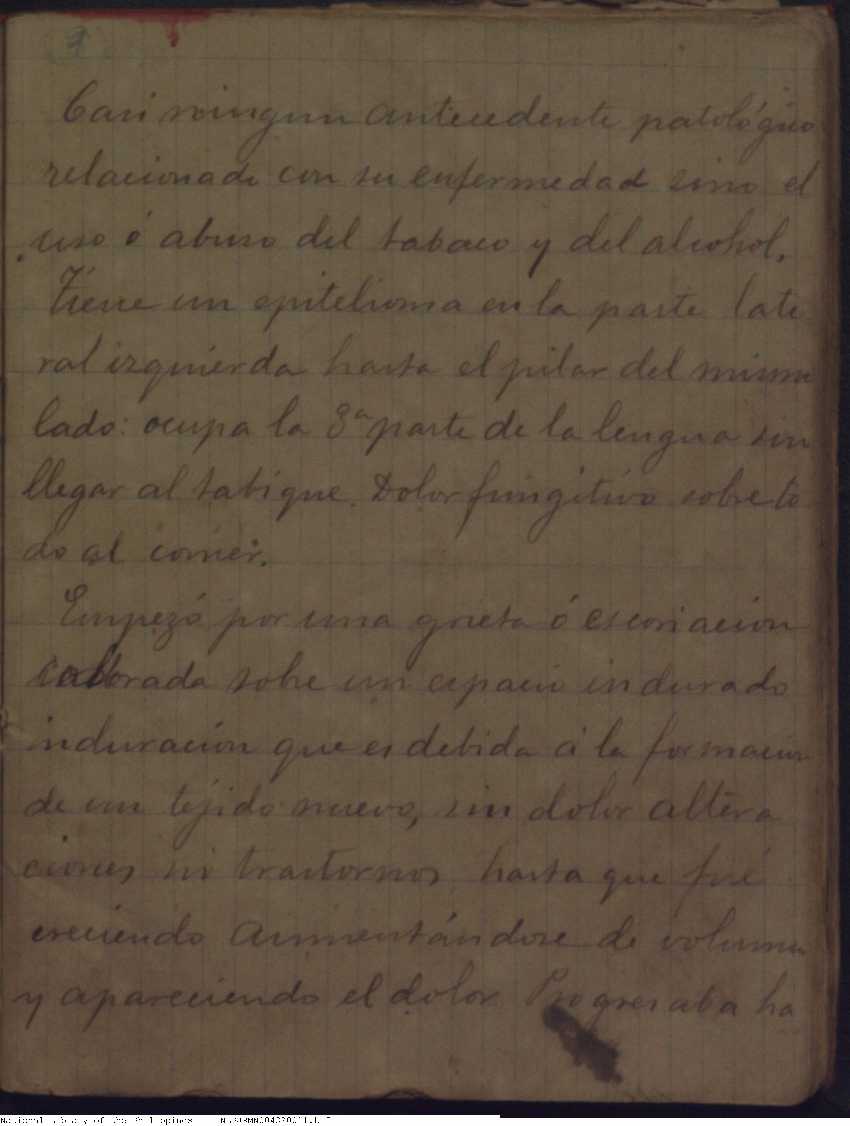 Casi ningun antecedente patológico
relacionado con su enfermedad sino el
uso ó abuso del tabaco y del alcohol.
Tiene un epitelioma en la parte late
ral izquierda hasta el pilar del mismo
lado: ocupa la 3ª parte de la lengua sin
llegar al tabique. Dolor fungitivo sobre to
do al comer.
Empezó por una grieta ó escoriación
sobre un espacio indurado
induración que es debida á la formacion
de un tejido nuevo, sin dolor altera
ciones ni trastornos hasta que fué
creciendo aumentándose de volumen
y apareciendo el dolor Progresaba ha
National Library of the Philippines